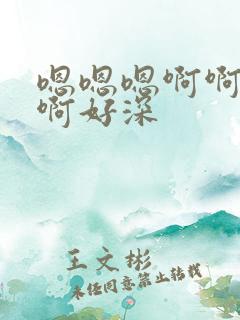 嗯嗯嗯啊啊
啊好深
王文彬
未经同意禁止转载